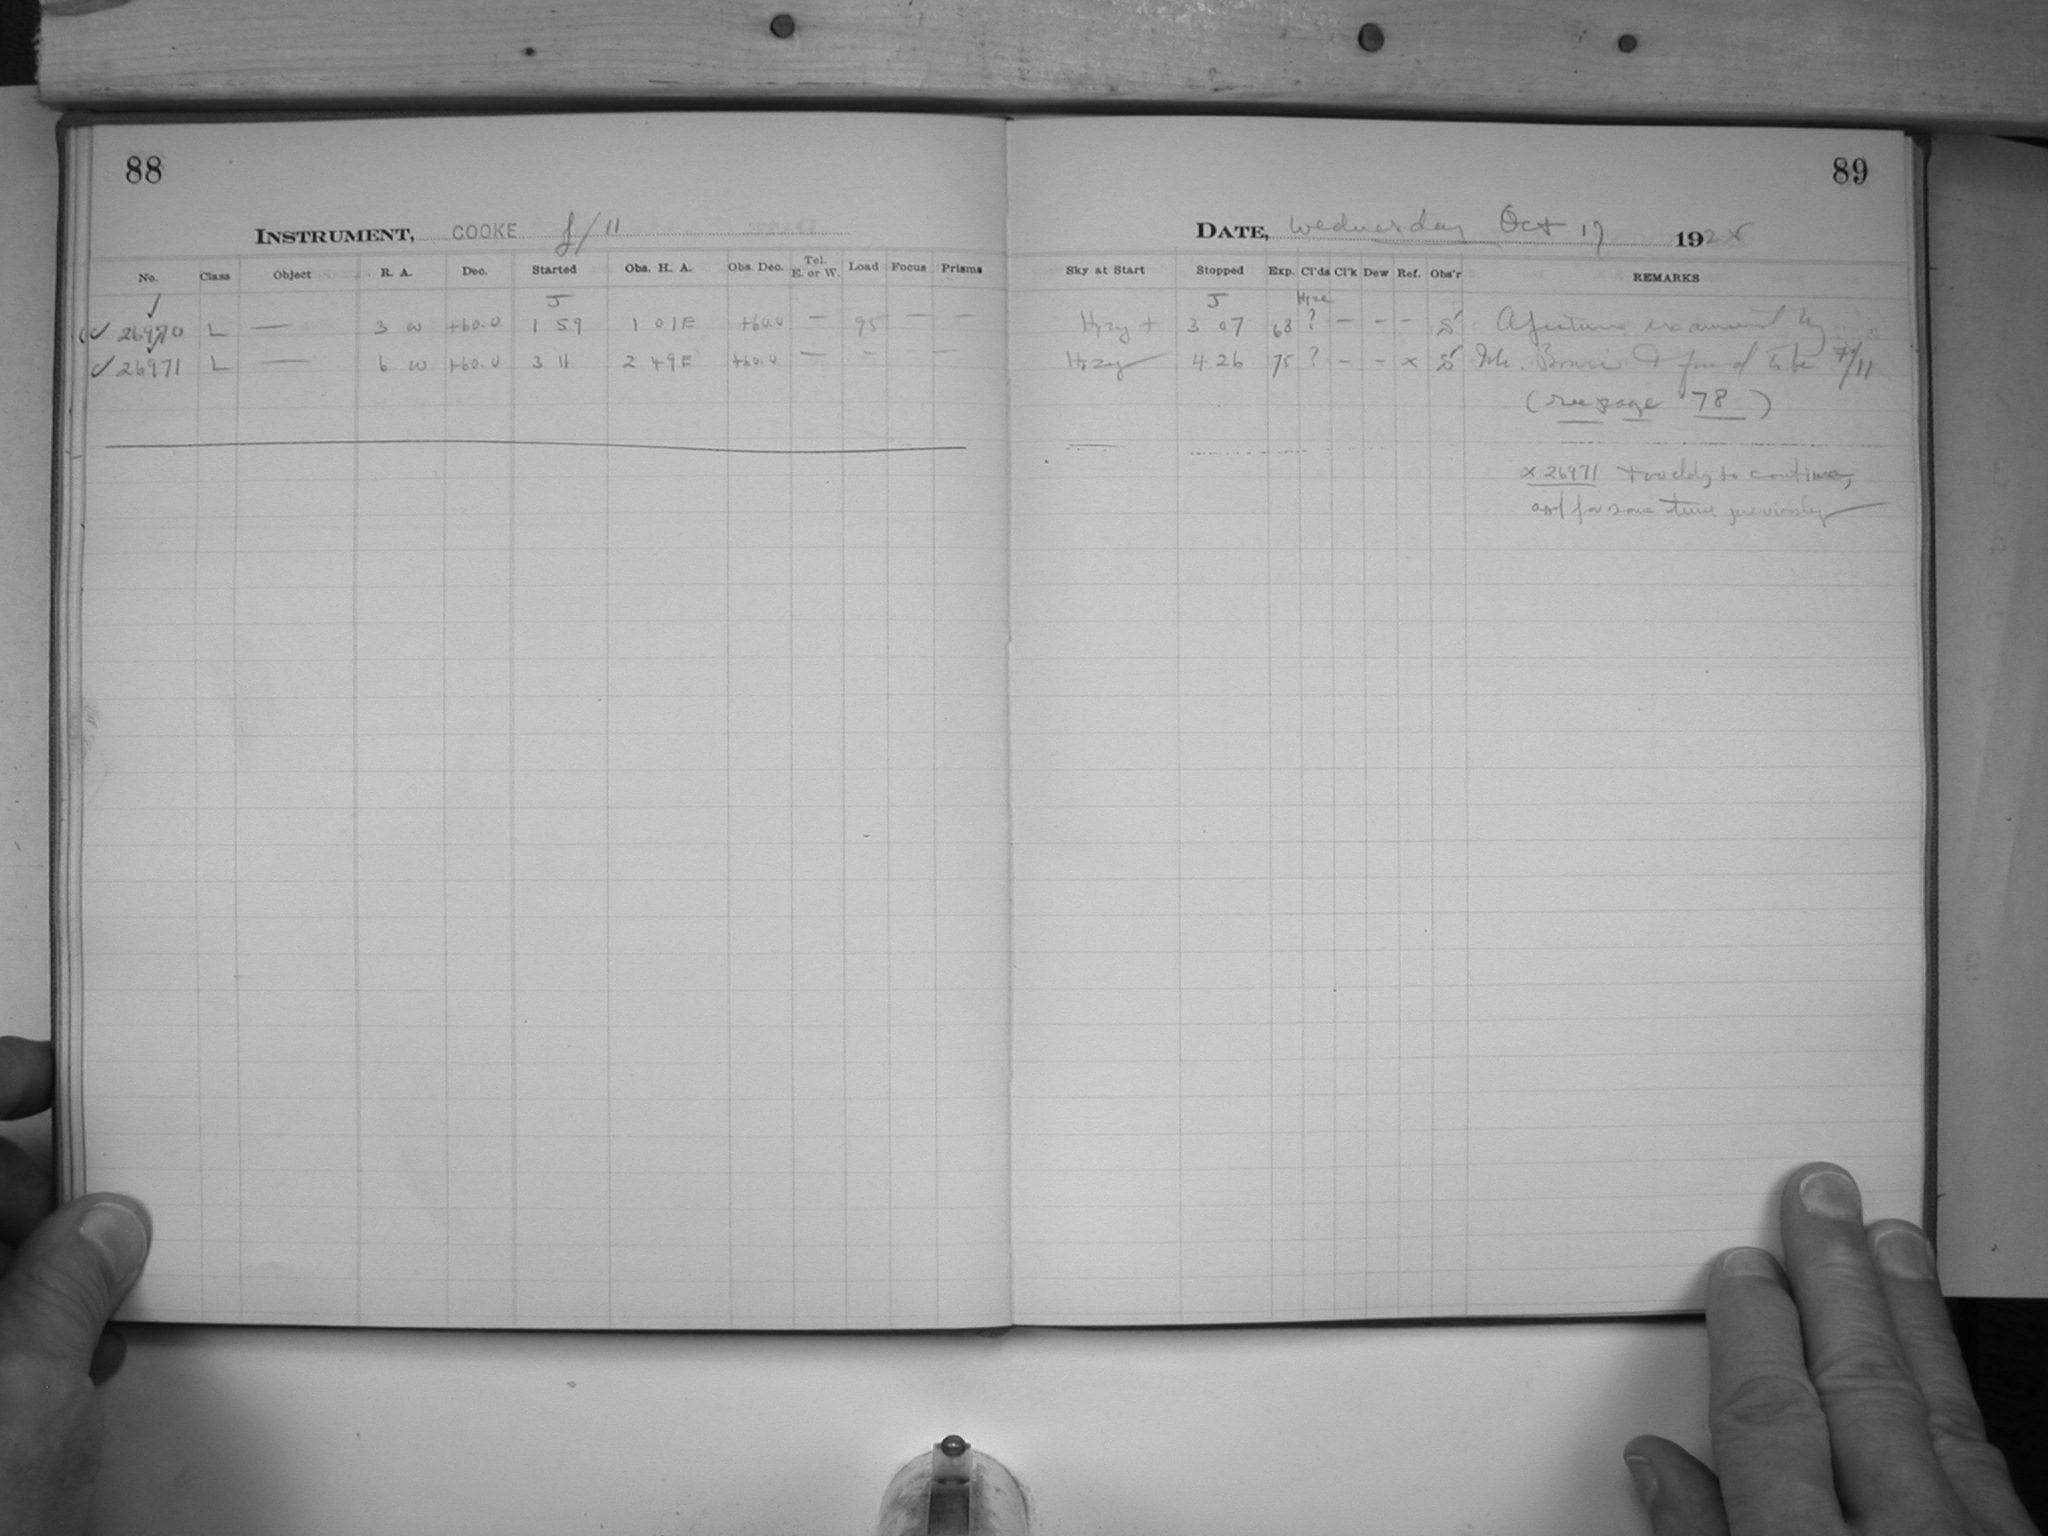 88
INSTRUMENT, COOKE f/11
No. Class Object R. A. Dec. Started Obs. H. A. Obs. Dec. Tel. E. or W. Load Focus Prisms
J
26970 L — 3 w +60.0 1 59 1 01E +60.0 — 95 — —
26971 L — 6 w +60.0 3 11 2 49E +60.0 — - - —
89
DATE, Wednesday Oct 17 1928
Sky at Start Stopped Exp. Cl'ds Cl'k Dew Ref. Obs'r REMARKS
J Hze
Hzy + 3 07 68 ? — - - S Aperture examined by
Hzy 4 26 75 ? - - x S Mr. Bowie & found to be F/11
(see page 78)
x 26971 to continue,
and for some time previously